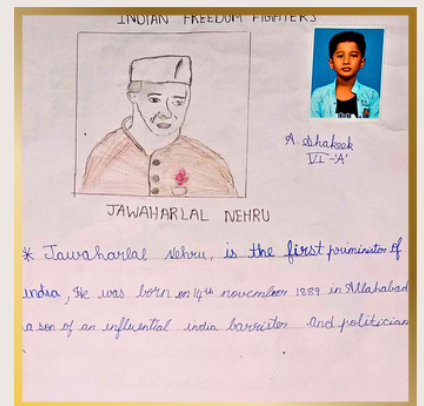 INDIAN FREEDOM FIGHTERS
A. Shakeek
VI -'A'
JAWAHARLAL NEHRU
* Jawaharlal Nehru, is the first priminister of
india, He was born on 14th november 1889 in Allahabad
a son of an influential india barrister and politician